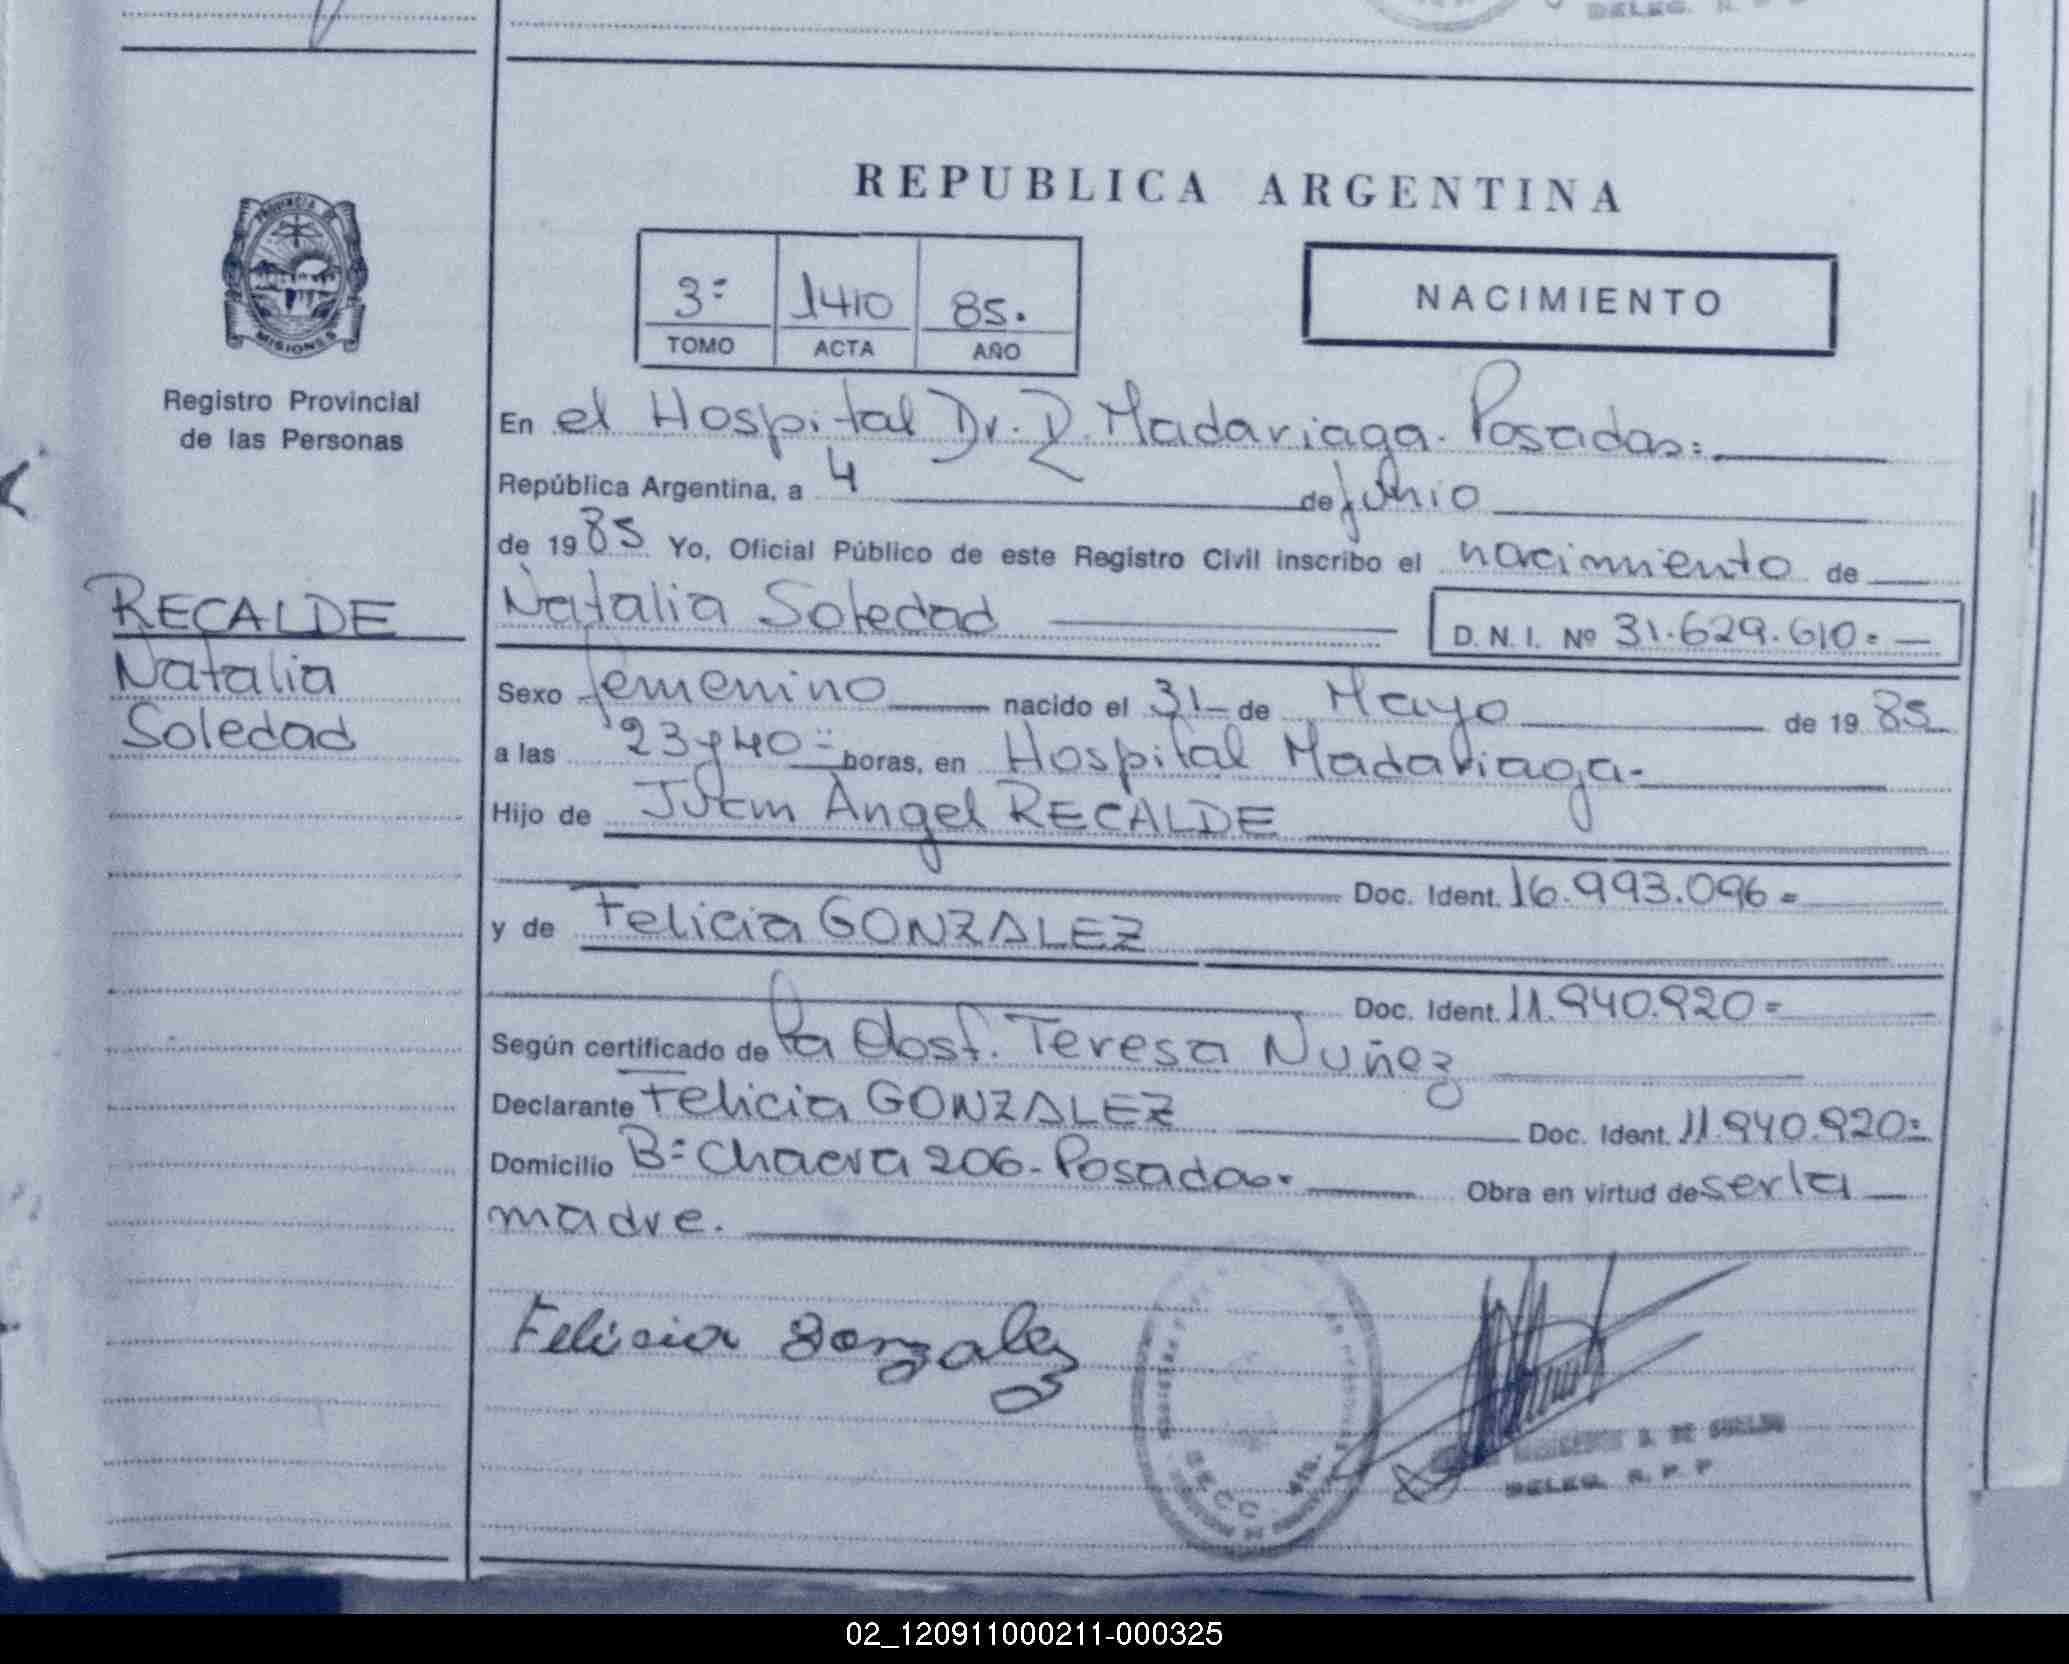 DELEG. R. P P
PROVINCIA DE
MISIONES
Registro Provincial
de las Personas
RECALDE
Natalia
Soledad
REPUBLICA ARGENTINA
3º 1410 85.
TOMO ACTA AÑO
NACIMIENTO
En el Hospital Dr. R. Madariaga. Posadas.
República Argentina, a 4 de junio
de 1985 Yo, Oficial Público de este Registro Civil inscribo el nacimiento de
Natalia Soledad D. N. I. Nº 31.629.610.
Sexo femenino nacido el 31 de Mayo de 1985
a las 23 y 40 horas, en Hospital Madariaga.
Hijo de Juan Angel RECALDE
Doc. Ident. 16.993.096
y de Felicia GONZALEZ
Doc. Ident. 11.940.920
Según certificado de la Obst. Teresa Nuñez
Declarante Felicia GONZALEZ Doc. Ident. 11.940.920
Domicilio Bº Chacra 206. Posadas. Obra en virtud de ser la
madre.
Felicia Gonzalez
DELEG. R. P. P
02_120911000211-000325